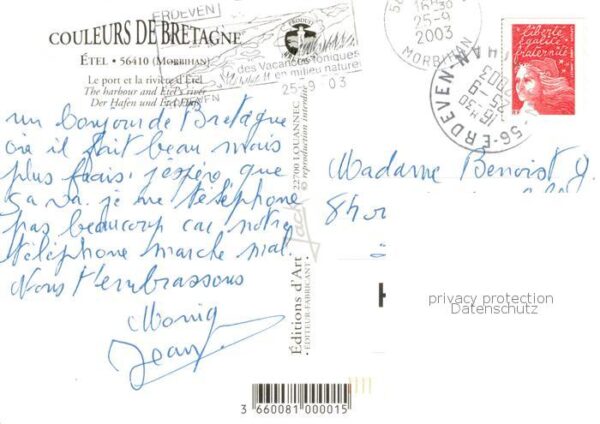 COULEURS DE BRETAGNE
ÉTEL - 56410 (MORBIHAN)
Le port et la rivière d'Etel
The harbour and Etel's river
Der Hafen und Etel Fluß
ERDEVEN
des Vacances toniques
en milieu naturel
25-9 03
16H30
25-9
2003
MORBIHAN
56-ERDEVEN
16H30
25-9
2003
MORBIHAN
liberté
égalité
fraternité
un bonjour de Bretagne
où il fait beau mais
plus frais. j'espère que
ça va. je me téléphone
pas beaucoup car notre
téléphone marche mal.
Nous t'embrassons
Moniq
Jean
Éditions d'Art
• ÉDITEUR-FABRICANT •
Jack
22700 LOUANNEC
© reproduction interdite
Madame Benoist
privacy protection
Datenschutz
3 660081 000015